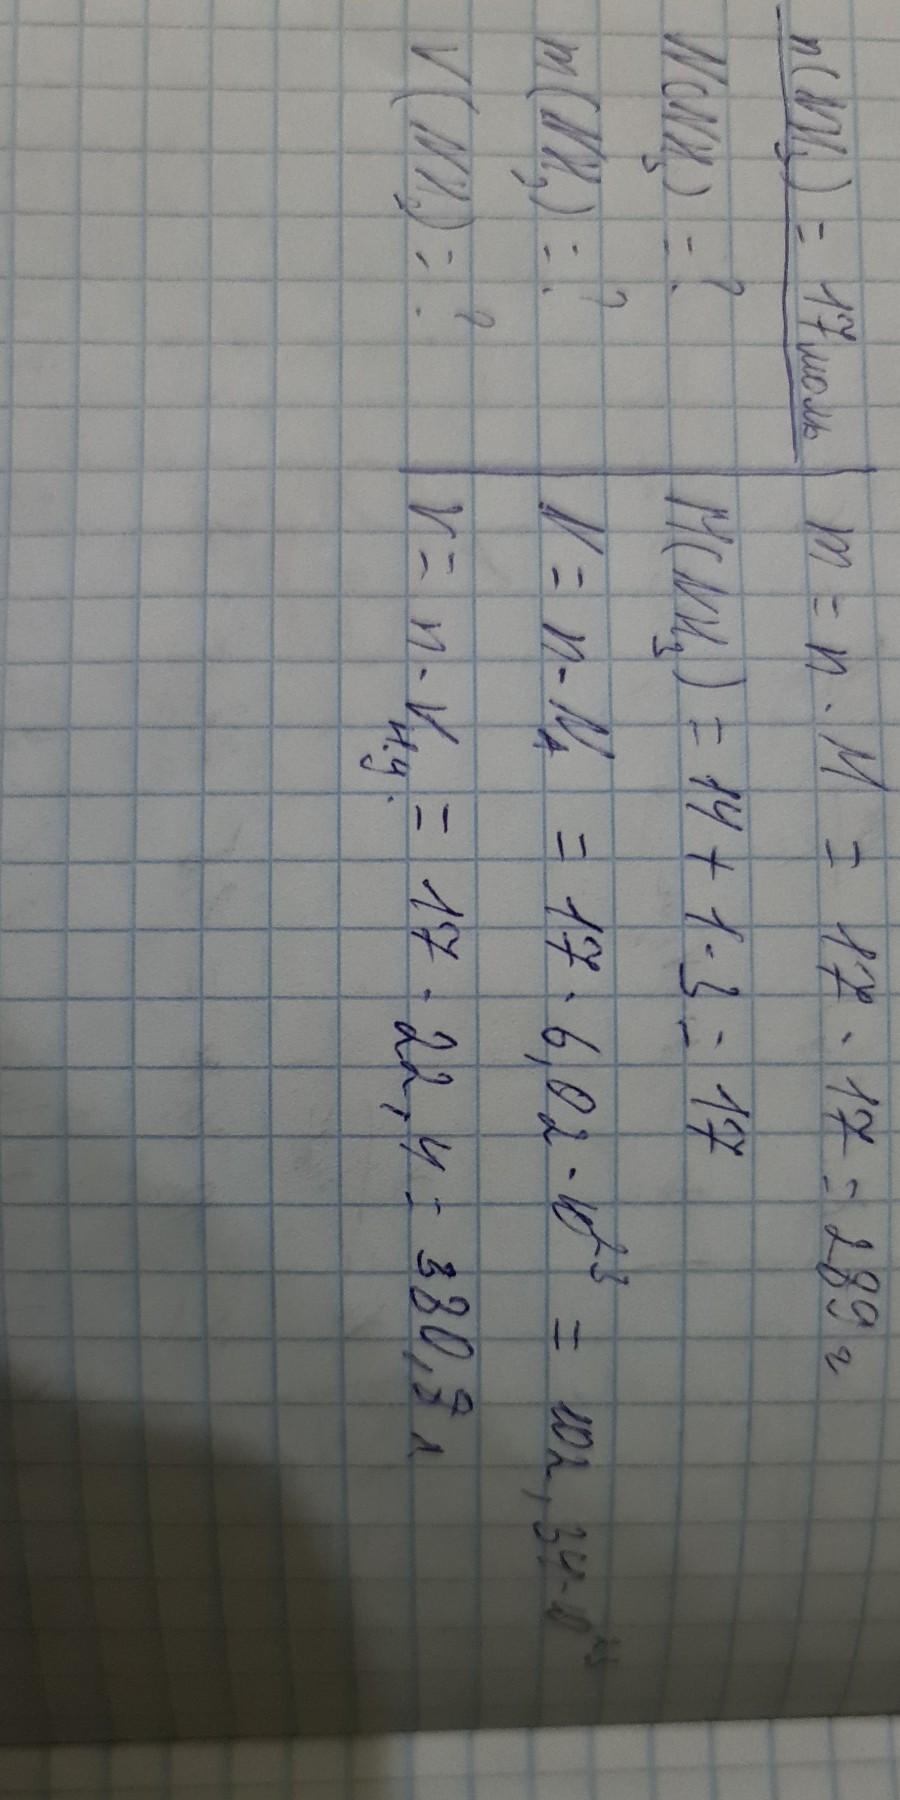 n(NH₃) = 17 моль
N(NH₃) = ?
m(NH₃) = ?
V(NH₃) = ?
m = n · M = 17 · 17 = 289 г
M(NH₃) = 14 + 1 · 3 = 17
N = n · Nₐ = 17 · 6,02 · 10²³ = 102,34 · 10²³
V = n · Vн.у. = 17 · 22,4 = 380,8 л